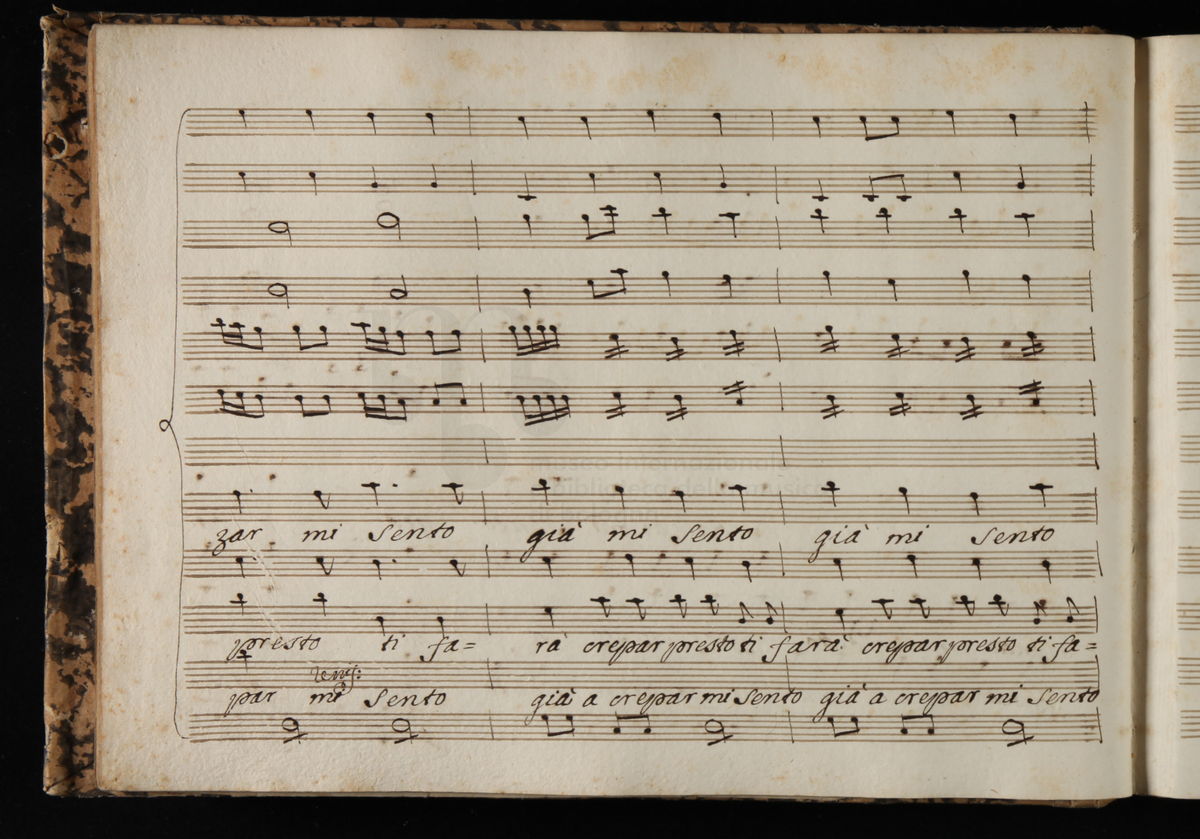 zar mi sento già mi sento già mi sento
presto ti fa= rà crepar presto ti farà crepar presto ti fa=
par mi sento già a crepar mi sento già a crepar mi sento